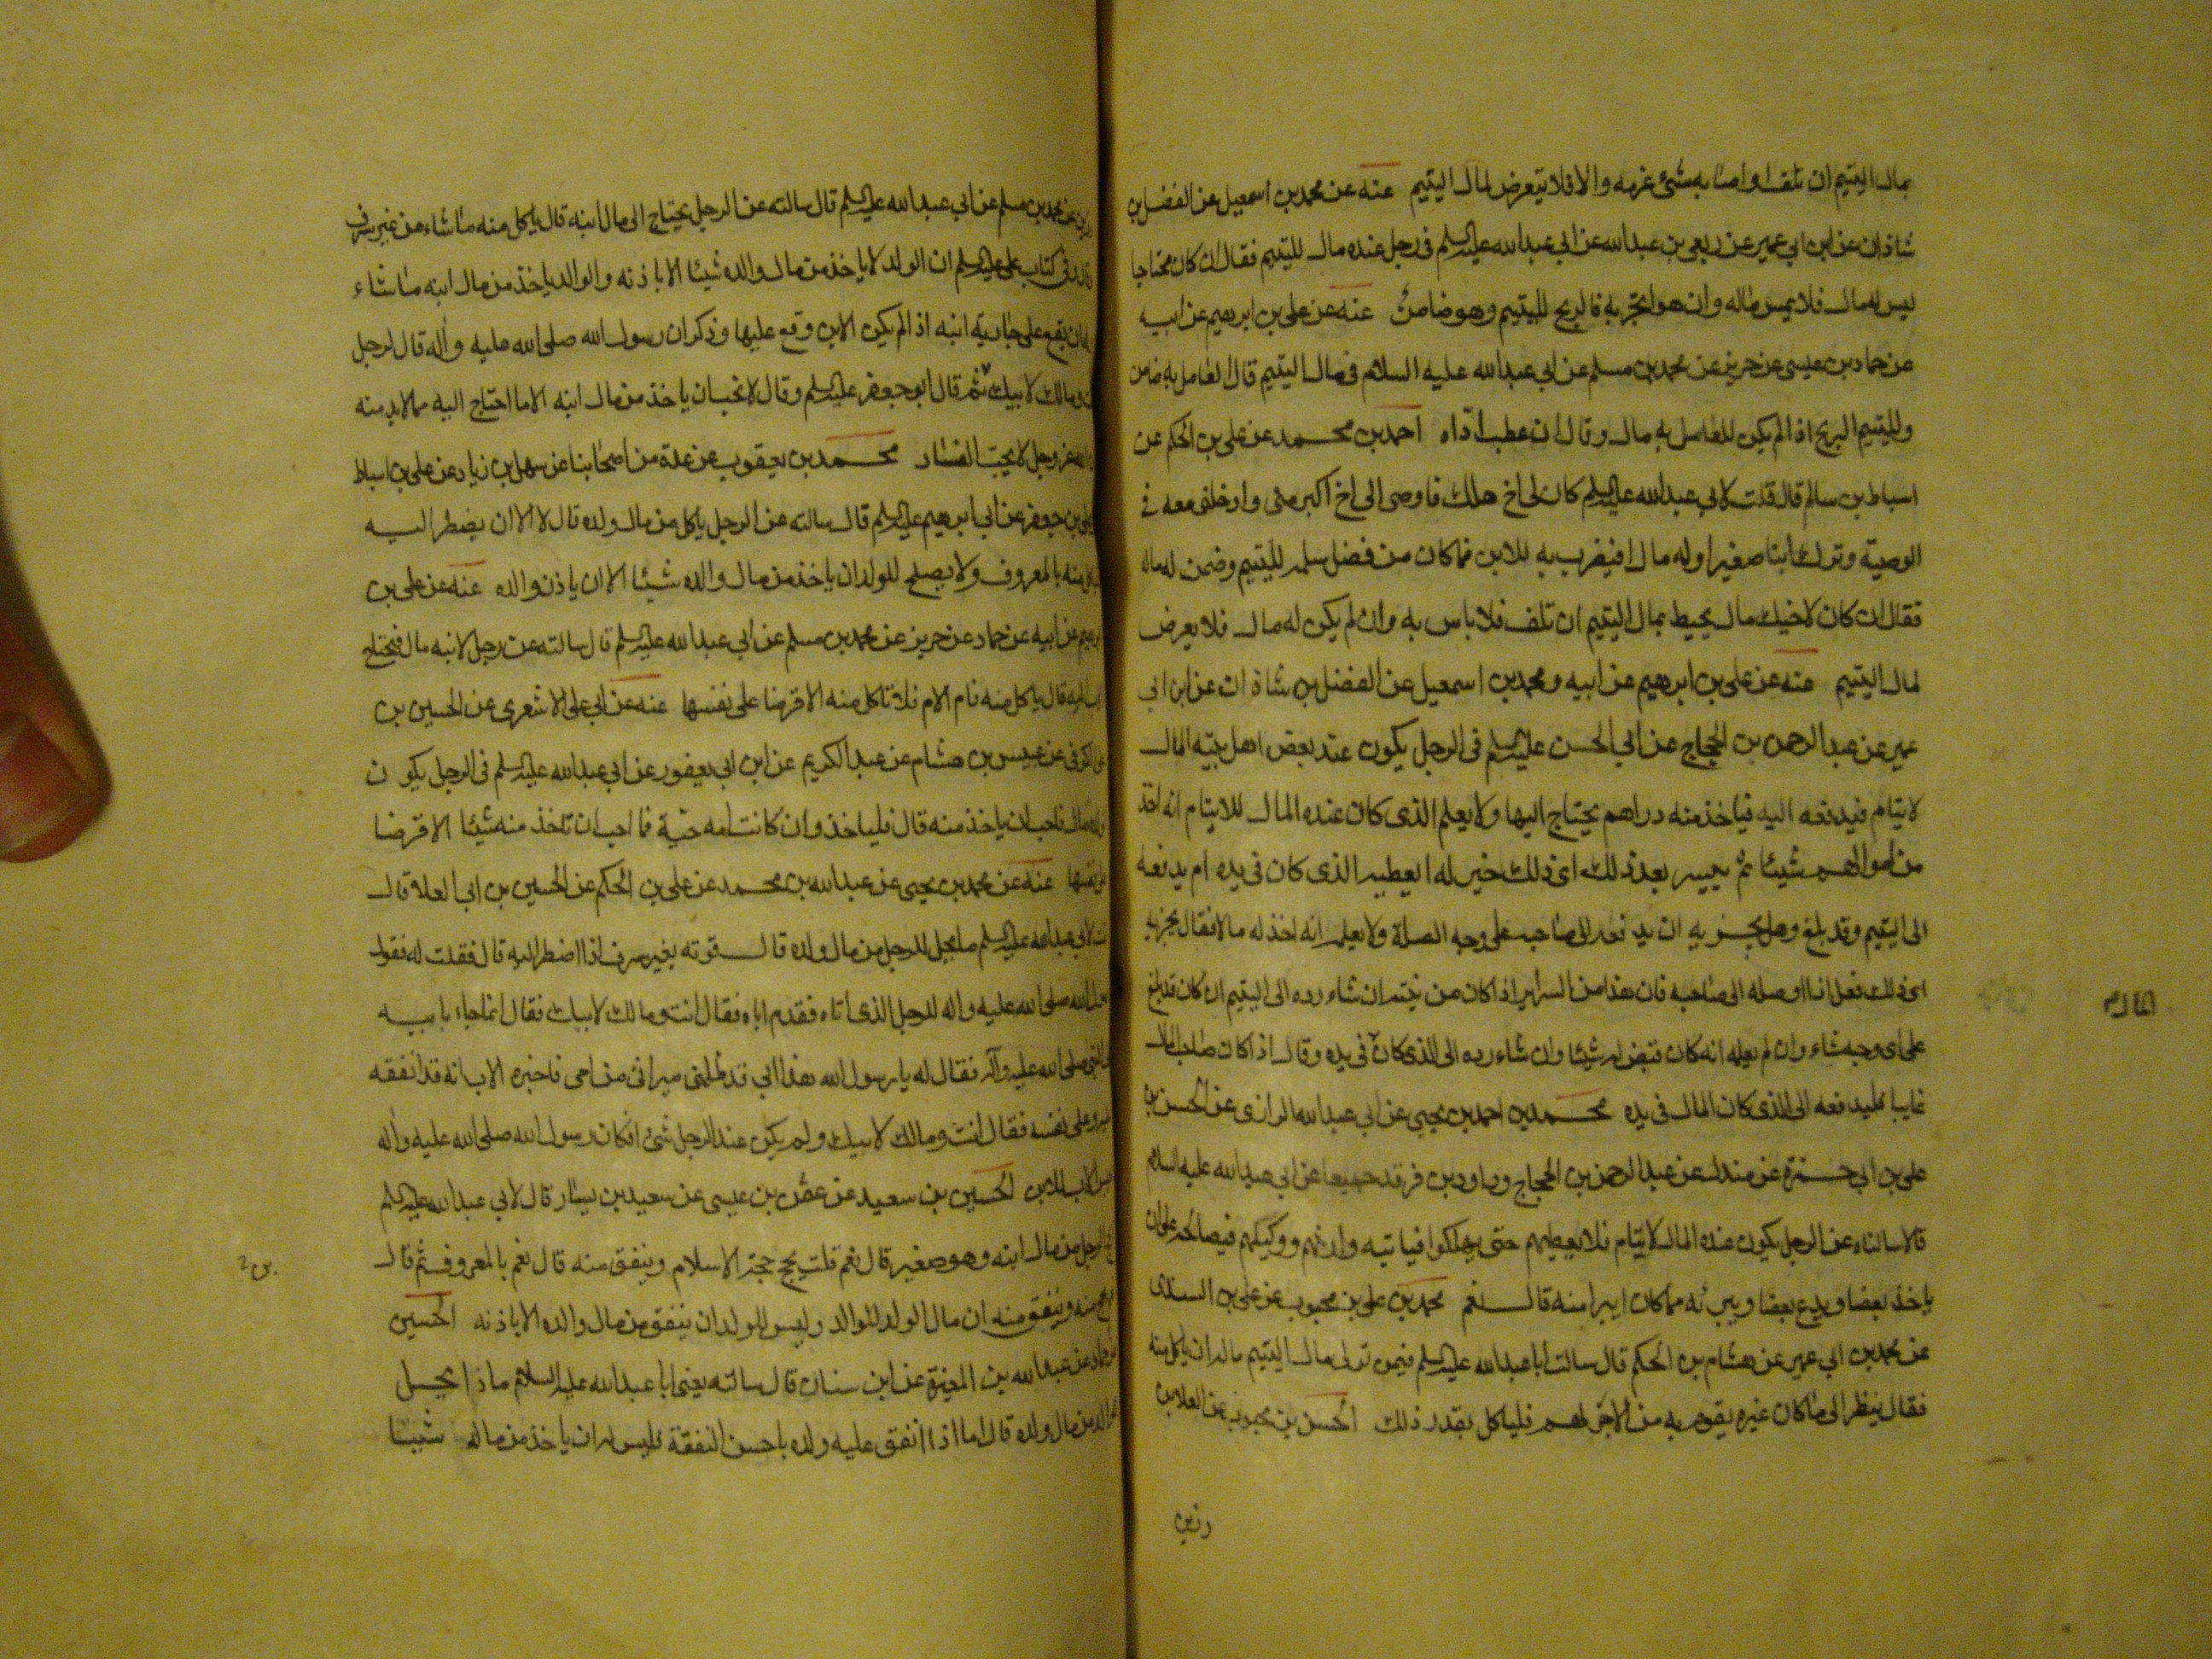 بمال اليتيم ان تلف او اصابه شئ غرمه والا فلا يتعرض لمال اليتيم عنه عن محمد بن اسمعيل عن الفضل بن
شاذان عن ابن ابي عمير عن ربعي بن عبدالله عن ابي عبدالله عليه السلم في رجل عنده مال لليتيم فقال ان كان محتاجا
ليس له مال فلا يمس ماله وان هو اتجر به فالربح لليتيم وهو ضامن عنه عن علي بن ابرهيم عن ابيه
عن حماد بن عيسى عن حريز عن محمد بن مسلم عن ابي عبدالله عليه السلام في مال اليتيم قال العامل به ضامن
ولليتيم الربح اذا لم يكن للعامل به مال وقال ان عطب اداه احمد بن محمد عن علي بن الحكم عن
اسباط بن سالم قال قلت لابي عبدالله عليه السلم كان لي اخ هلك فاوصى الى اخ اكبر مني وادخلني معه في
الوصية وترك ابنا صغيرا وله مال افيضرب به للابن فما كان من فضل سلمه لليتيم وضمن له ماله
فقال ان كان لاخيك مال يحيط بمال اليتيم ان تلف فلا باس به وان لم يكن له مال فلا يعرض
لمال اليتيم عنه عن علي بن ابرهيم عن ابيه ومحمد بن اسمعيل عن الفضل بن شاذان عن ابن ابي
عمير عن عبد الرحمن بن الحجاج عن ابي الحسن عليه السلم في الرجل يكون عند بعض اهل بيته المال
لايتام فيدفعه اليه فياخذ منه دراهم يحتاج اليها ولا يعلم الذي كان عنده المال للايتام انه اخذ
من اموالهم شيئا ثم ييسر بعد ذلك اي ذلك خير له ايعطيه الذي كان في يده ام يدفعه
الى اليتيم وقد بلغ وهل يجزيه ان يدفعه الى صاحبه على وجه الصلة ولا يعلمه انه اخذ له مالا فقال يجزيه
اي ذلك فعل اذا اوصله الى صاحبه فان هذا من السراير اذا كان من نيته ان شاء رده الى اليتيم ان كان قد بلغ
على اي وجه شاء وان لم يعلمه انه كان قبض له شيئا وان شاء رده الى الذي كان في يده وقال اذا كان صاحب المال
غايبا فليدفعه الى الذي كان المال في يده محمد بن احمد بن يحيى عن ابي عبدالله الرازي عن الحسن بن
علي بن ابي حمزة عن مندل عن عبد الرحمن بن الحجاج وداود بن فرقد جميعا عن ابي عبدالله عليه السلام
قالا سالناه عن الرجل يكون عنده المال لايتام فلا يعطيهم حتى يهلكوا فياتيه وارثهم ووكيلهم فيصالحه على ان
ياخذ بعضا ويدع بعضا ويبرئه مما كان ايبرا منه قال نعم محمد بن علي بن محبوب عن علي بن السندي
عن محمد بن ابي عمير عن هشام بن الحكم قال سالت ابا عبدالله عليه السلم فيمن تولى مال اليتيم ماله ان ياكل منه
فقال ينظر الى ما كان غيره يقوم به من الاجر لهم فلياكل بقدر ذلك الحسن بن محبوب عن العلا بن
رزين
عن محمد بن مسلم عن ابي عبدالله عليه السلم قال سالته عن الرجل يحتاج الى مال ابنه قال ياكل منه ما شاء من غير سرف
في كتاب علي عليه السلم ان الولد لا ياخذ من مال والده شيئا الا باذنه والوالد ياخذ من مال ابنه ما شاء
ان يقع على جارية ابنه اذا لم يكن الابن وقع عليها وذكر ان رسول الله صلى الله عليه واله قال لرجل
ومالك لابيك ثم قال ابو جعفر عليه السلم وقال لا نحب ان ياخذ من مال ابنه الا ما احتاج اليه مما لابد منه
عز وجل لا يحب الفساد محمد بن يعقوب عن عدة من اصحابنا عن سهل بن زياد عن علي بن اسباط
بن جعفر عن ابي ابرهيم عليه السلم قال سالته عن الرجل ياكل من مال ولده قال لا الا ان يضطر اليه
منه بالمعروف ولا يصلح للولد ان ياخذ من مال والده شيئا الا ان ياذن والده عنه عن علي بن
عن ابيه عن حماد عن حريز عن محمد بن مسلم عن ابي عبدالله عليه السلم قال سالته عن رجل لابنه مال فيحتاج
اليه قال ياكل منه فام الام فلا تاكل منه الا قرضا على نفسها عنه عن ابي علي الاشعري عن الحسين بن
الكوفي عن عبيس بن هشام عن عبد الكريم عن ابن ابي يعفور عن ابي عبدالله عليه السلم في الرجل يكون
مال فاحب ان ياخذ منه قال فلياخذ وان كانت امه حية فما احب ان تاخذ منه شيئا الا قرضا
نفسها عنه عن محمد بن يحيى عن عبدالله بن محمد عن علي بن الحكم عن الحسين بن ابي العلا قال
لابي عبدالله عليه السلم ما يحل للرجل من مال ولده قال قوته بغير سرف اذا اضطر اليه قال فقلت له فقول
الله صلى الله عليه واله للرجل الذي اتاه فقدم اباه فقال انت ومالك لابيك فقال انما جاء بابيه
صلى الله عليه وآله فقال له يا رسول الله هذا ابي قد ظلمني ميراثي من امي فاخبره الاب انه قد انفقه
وعلى نفسه فقال انت ومالك لابيك ولم يكن عند الرجل شئ افكان رسول الله صلى الله عليه واله
الاب للابن الحسين بن سعيد عن عثمن بن عيسى عن سعيد بن يسار قال لابي عبدالله عليه السلم
الرجل من مال ابنه وهو صغير قال نعم قلت يحج حجة الاسلام وينفق منه قال نعم بالمعروف ثم قال
منه وينفق منه ان مال الولد للوالد وليس للولد ان ينفق من مال والده الا باذنه الحسين
عن عبدالله بن المغيرة عن ابن سنان قال سالته يعني ابا عبدالله عليه السلام ماذا يحل
من مال ولده قال اما اذا انفق عليه ولده باحسن النفقة فليس له ان ياخذ من ماله شيئا